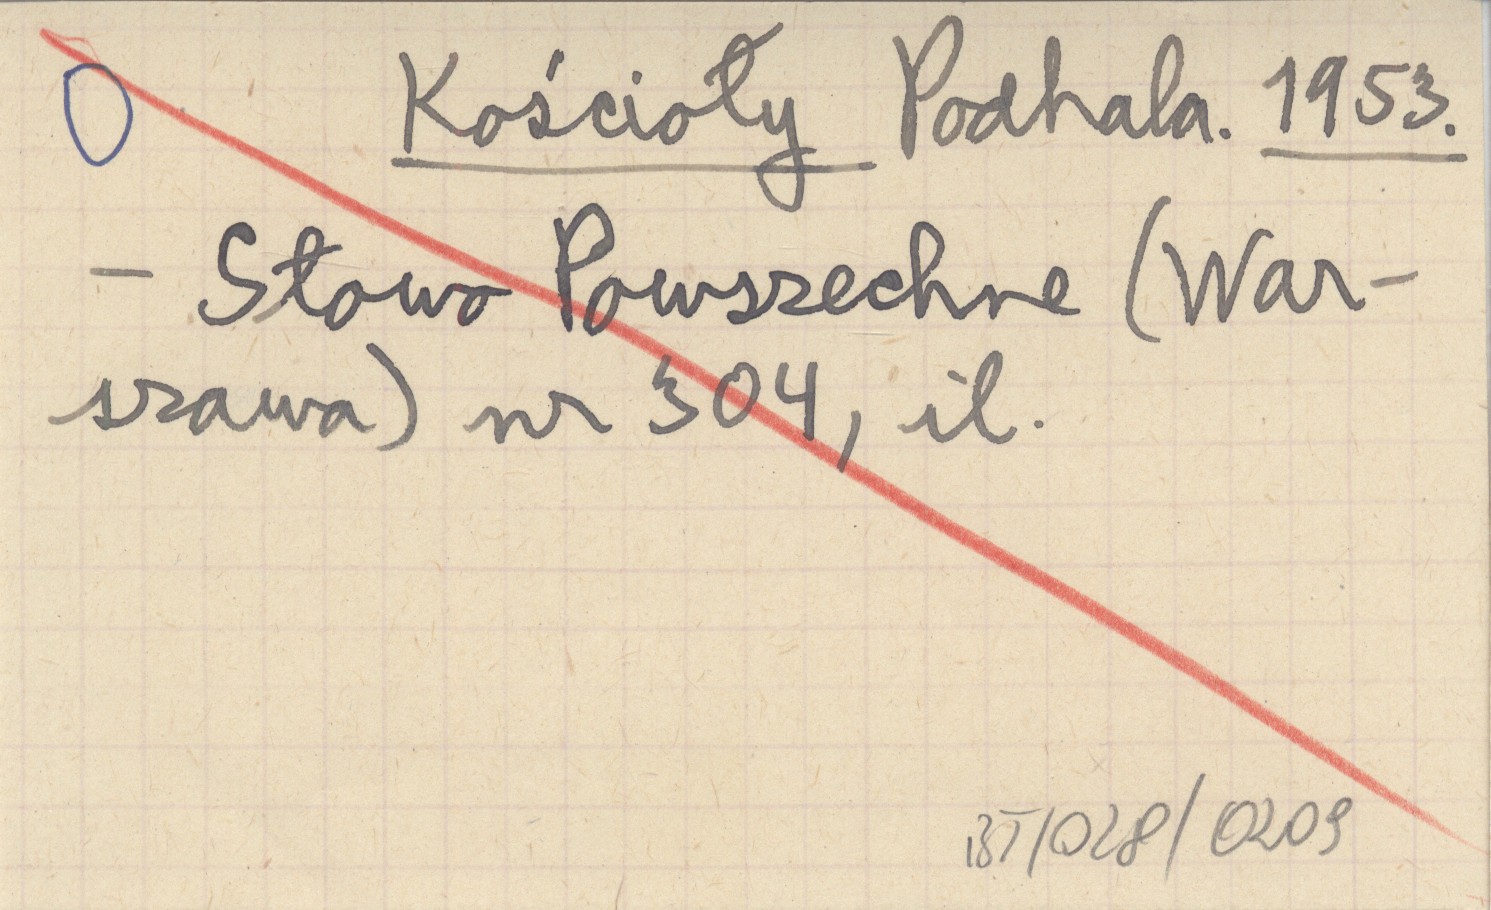 Kościoły Podhala. 1953.
— Słowo Powszechne (War-
szawa) nr 304, il.
BT/028/0209